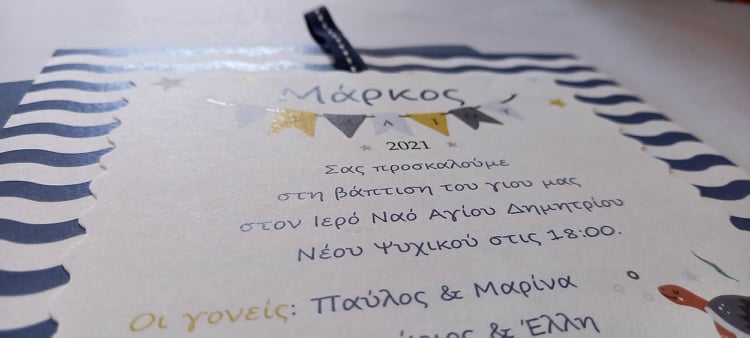 Μάρκος
2021
Σας προσκαλούμε
στη βάπτιση του γιου μας
στον Ιερό Ναό Αγίου Δημητρίου
Νέου Ψυχικού στις 18:00.
Οι γονείς: Παύλος & Μαρίνα
& Έλλη